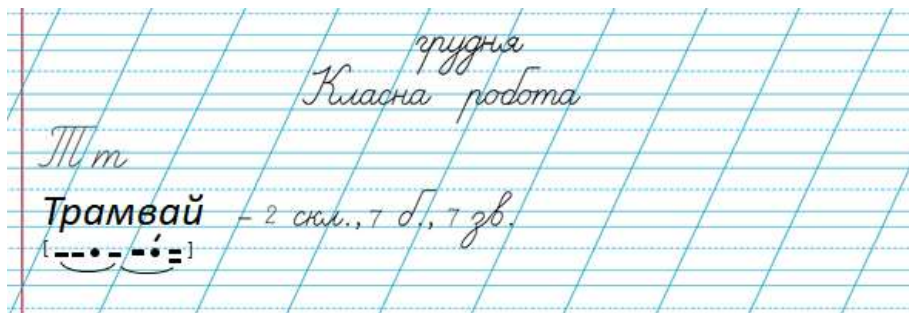 грудня
Класна робота
Т т
Трамвай – 2 скл., 7 б., 7 зв.
[ – – • – – •́ = ]